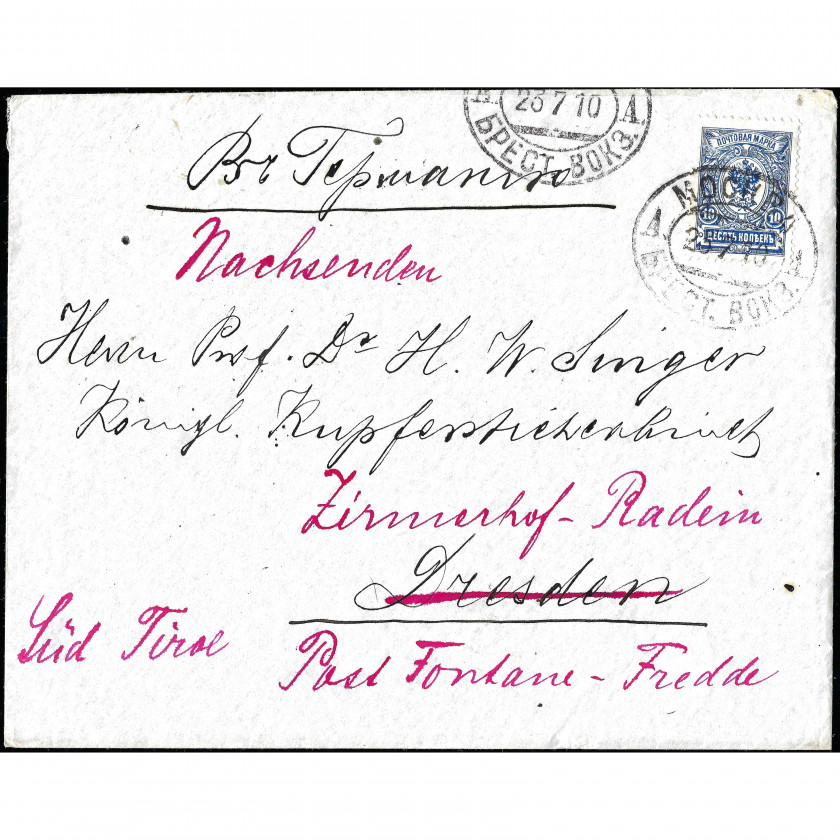 А. 23 7 10 А.
БРЕСТ. ВОКЗ.
Въ Германию
ПОЧТОВАЯ МАРКА
10 10
ДЕСЯТЬ КОПѢЕКЪ
МОСКВА
23 7 10
БРЕСТ. ВОКЗ.
Nachsenden
Herrn Prof. Dr H. W. Singer
Königl. Kupferstichcabinett
Zirmerhof - Radein
Dresden
Süd Tirol
Post Fontane - Fredde